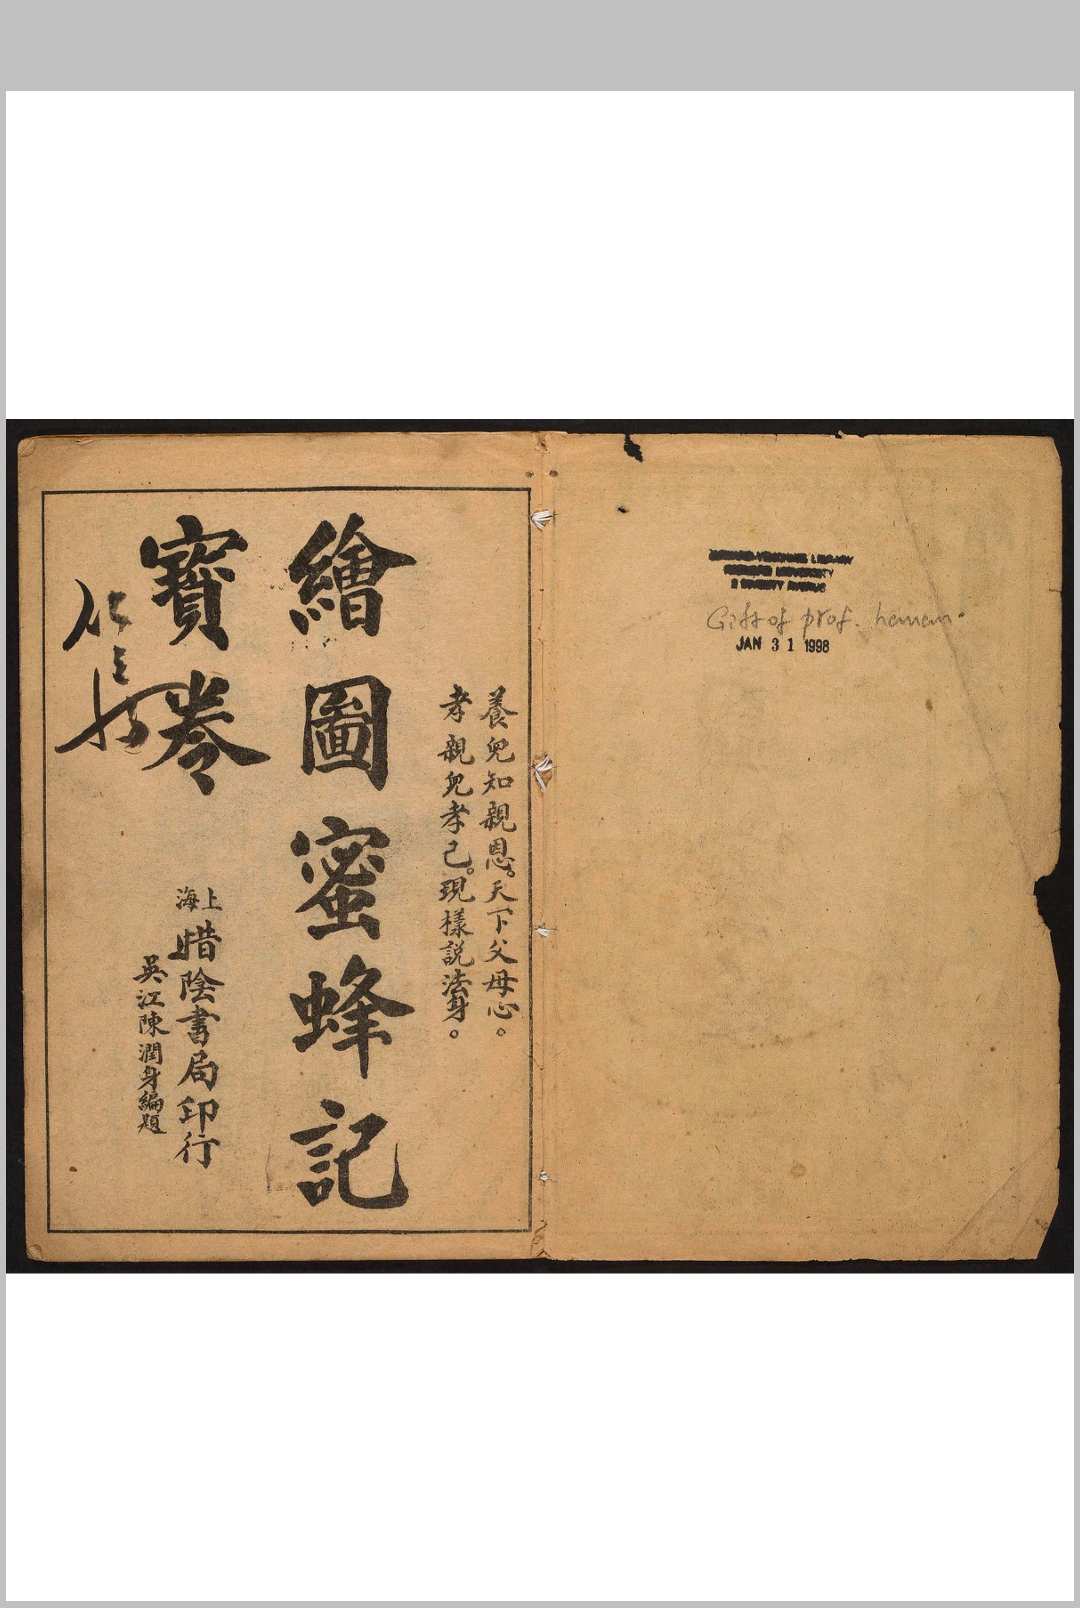 養兒知親恩。天下父母心。
孝親兒孝己。現樣説法身。
繪圖蜜蜂記
寶卷
上海
惜陰書局印行
吳江陳潤身編題
HARVARD-YENCHING LIBRARY
HARVARD UNIVERSITY
2 DIVINITY AVENUE
Gift of prof. hanan.
JAN 31 1998